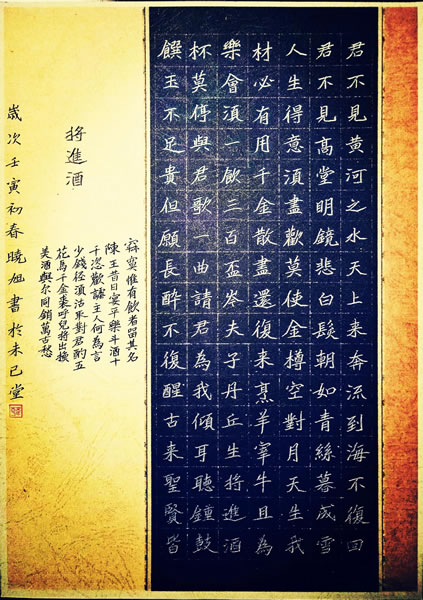 君不見黃河之水天上来奔流到海不復回
君不見高堂明鏡悲白髮朝如青絲暮成雪
人生得意須盡歡莫使金樽空對月天生我
材必有用千金散盡還復来烹羊宰牛且為
樂會須一飲三百盃岑夫子丹丘生將進酒
杯莫停與君歌一曲請君為我傾耳聽鍾鼓
饌玉不足貴但願長醉不復醒古来聖賢皆
寂寞惟有飲者留其名
陳王昔日宴平樂斗酒十
千恣歡謔主人何為言
少錢徑須沽取對君酌五
花馬千金裘呼兒將出換
美酒與尔同銷萬古愁
将進酒
歲次壬寅初春曉旭書於未已堂